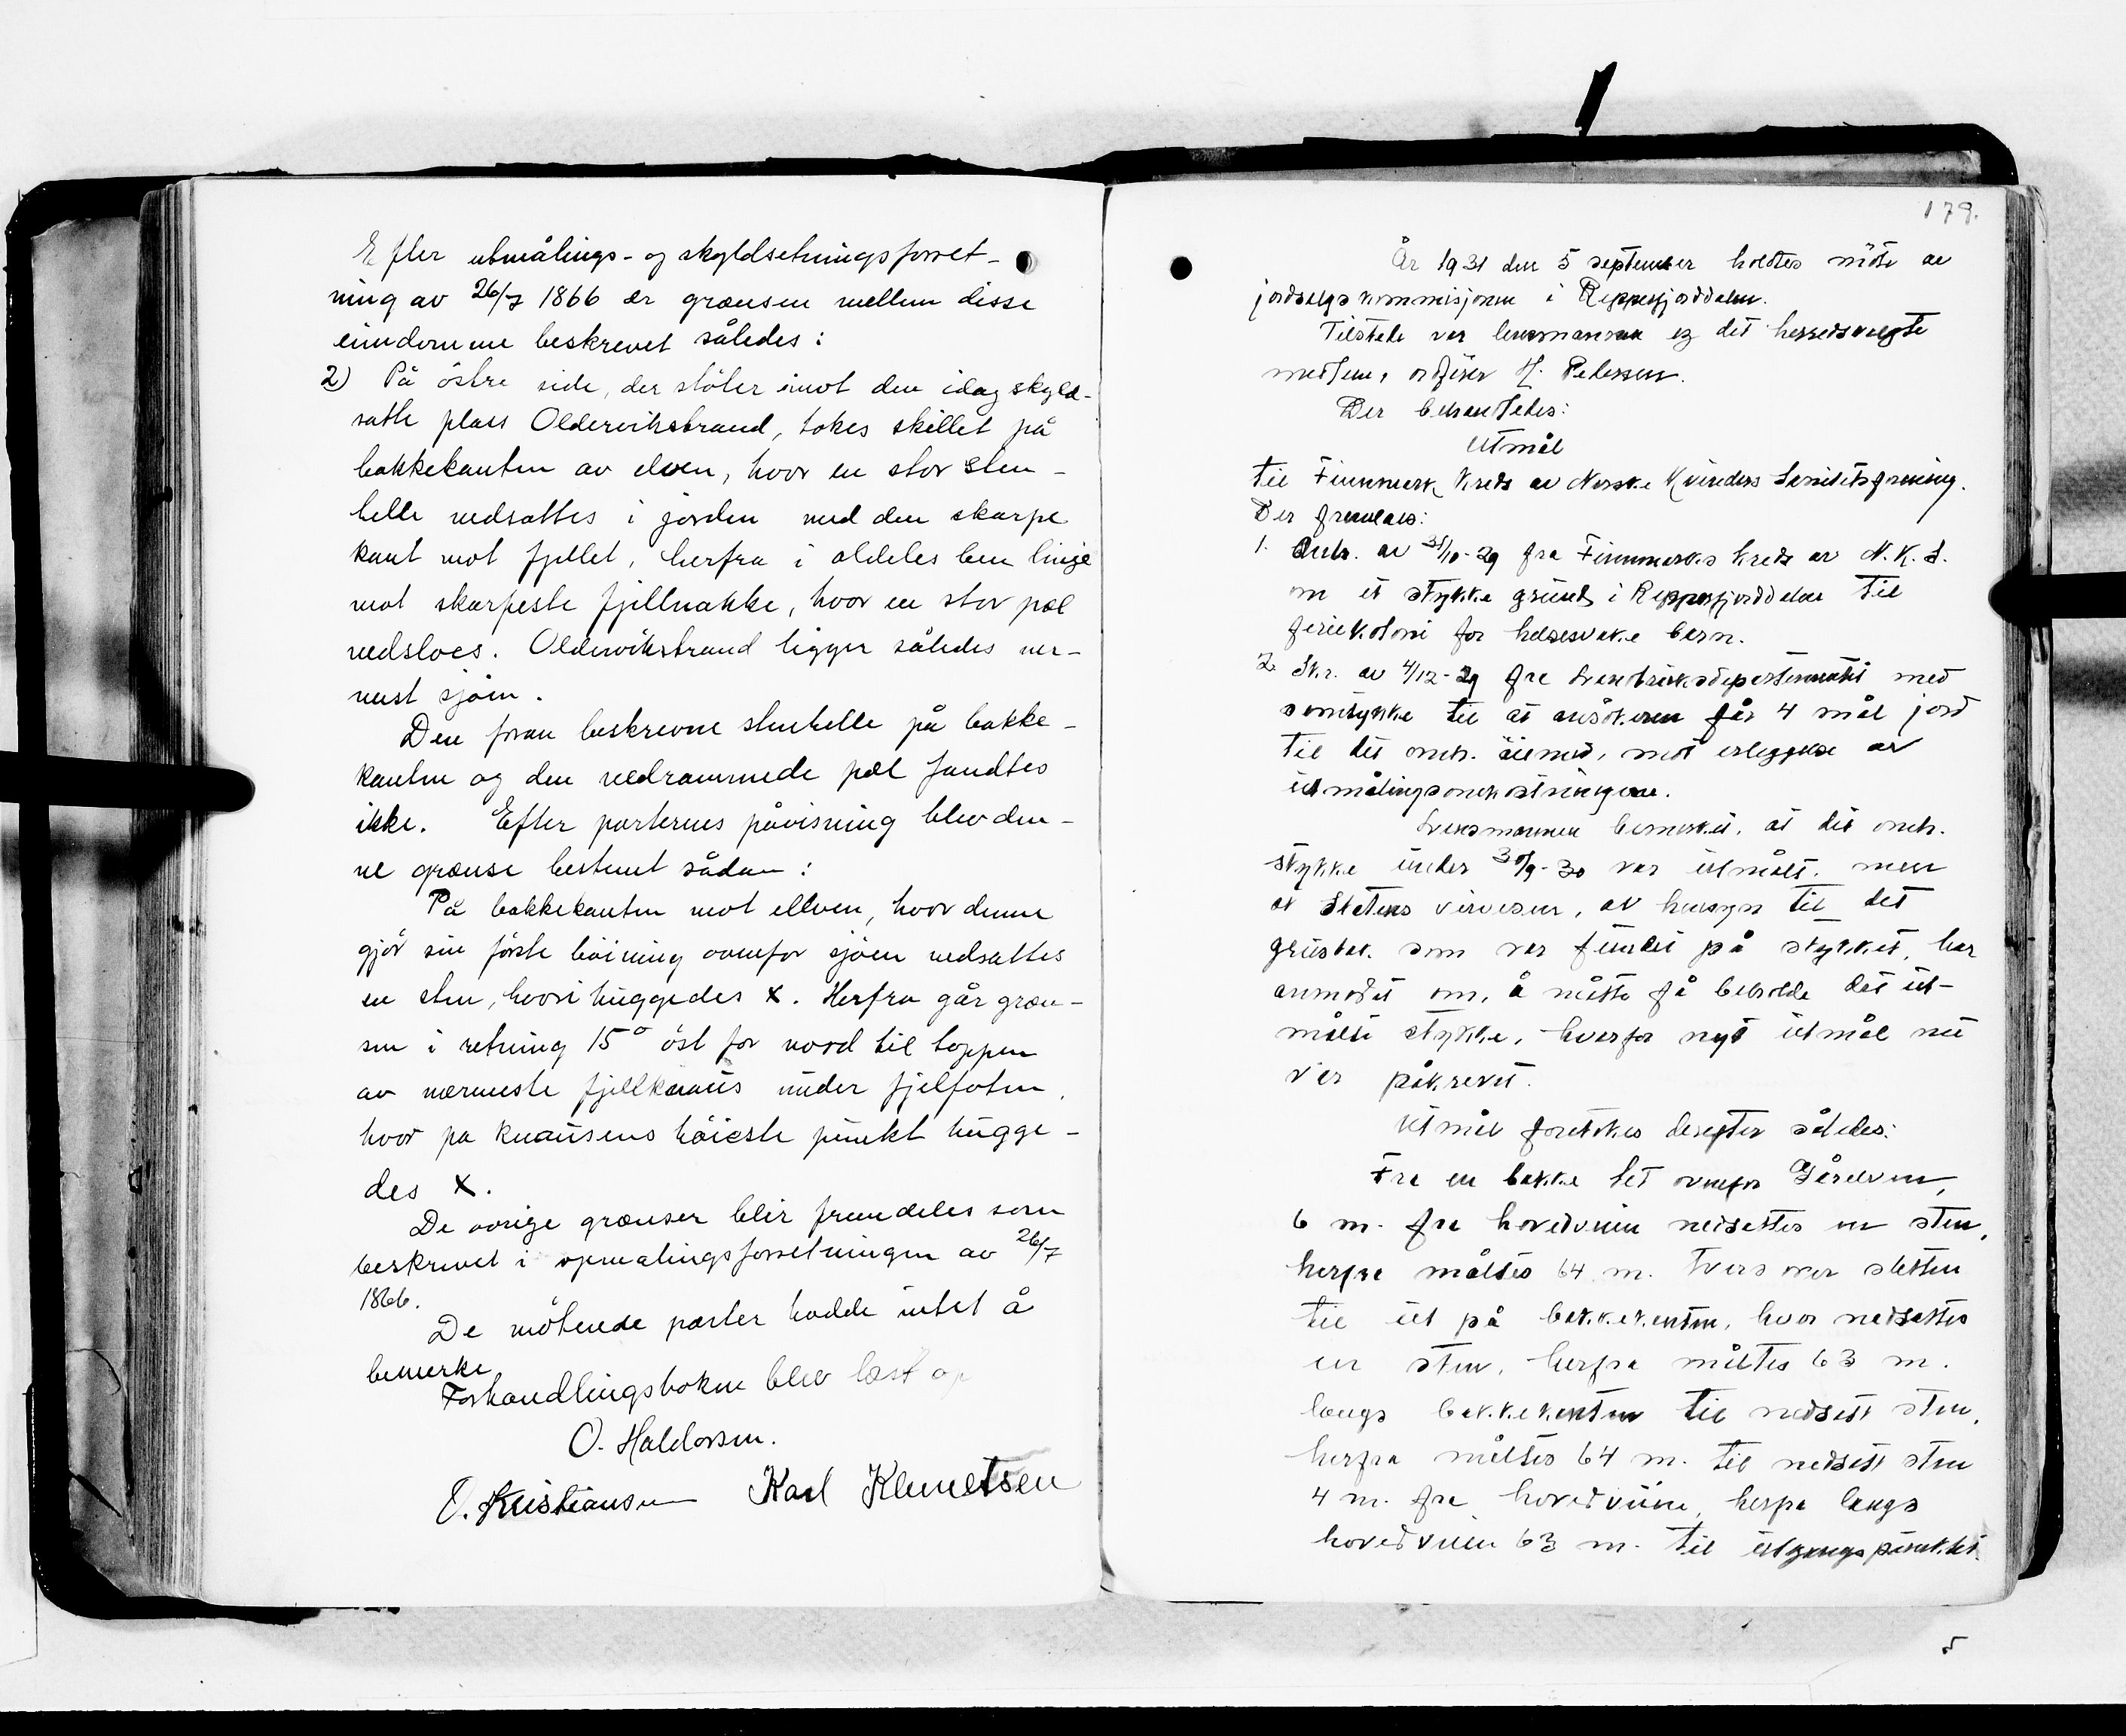 Efter utmålings- og skyldsetningsforret-
ning av 26/7 1866 er grænsen mellem disse
eiendomme beskrevet således:
2) På östre side, der stöter imot den idag skyld-
satte plass Oldervikstrand, tokes skillet på
bakkekanten av elven, hvor en stor sten-
helle nedsattes i jorden med den skarpe
kant mot fjellet, herfra i aldeles ben linje
mot skarpeste fjellnakke, hvor en stor pæl
nedsloes. Oldervikstrand ligger således nær-
mest sjöen.
Den foran beskrevne stenhelle på bakke-
kanten og den nedrammede pæl fandtes
ikke. Efter parternes påvisning blev den-
ne grænse bestemt sådan:
På bakkekanten mot elven, hvor denne
gjör sin förste böining ovenfor sjöen nedsattes
en sten, hvori huggedes X. Herfra går græn-
sen i retning 15° öst for nord til toppen
av nærmeste fjellknaus under fjelfoten,
hvor pa knausens höieste punkt hugge-
des X.
De övrige grænser blir fremdeles som
beskrevet i opmalingsforretningen av 26/7
1866.
De mötende parter hadde intet å
bemerke
Forhandlingsboken blev læst op
O. Haldorsen.
O. Kristiansen Karl Klemetsen
179.
År 1931 den 5 september holdtes möte av
jordsalgskommisjonen i Repparfjorddalen.
Tilstede var lensmannen og det herredsvalgte
medlem, ordförer H. Pedersen.
Der behandledes:
Utmål
til Finnmark Kreds av Norske Kvinders Sanitetsforening.
Der fremlaes:
1. Andr. av 31/10-29 fra Finnmarks Kreds av N.K.S.
om et stykke grund i Repparfjorddalen til
feriekoloni for helsesvake barn.
2 Skr. av 4/12-29 fra Landbruksdepartementet med
samtykke til at ansökeren får 4 mål jord
til det omh. öiemed, mot erleggelse av
utmålingsomkostningene.
Lensmannen bemerket, at det omh.
stykke under 30/9-30 var utmålt, men
at Statens veivesen, av hensyn til det
grustak som var fundet på stykket, har
anmodet om, å måtte få beholde det ut-
målte stykke, hvorfor nyt utmål nu
var påkrevet.
Utmål foretokes derefter således:
Fra en bakke tet ovenfor Gårdelven,
6 m. fra hovedveien nedsattes en sten,
herfra måltes 64 m. tvers over sletten
til ut på bakkekanten, hvor nedsattes
en sten, herfra måltes 63 m.
langs bakkekanten til nedsatt sten,
herfra måltes 64 m. til nedsatt sten
4 m. fra hovedveien, herfra langs
hovedveien 63 m. til utgangspunktet.